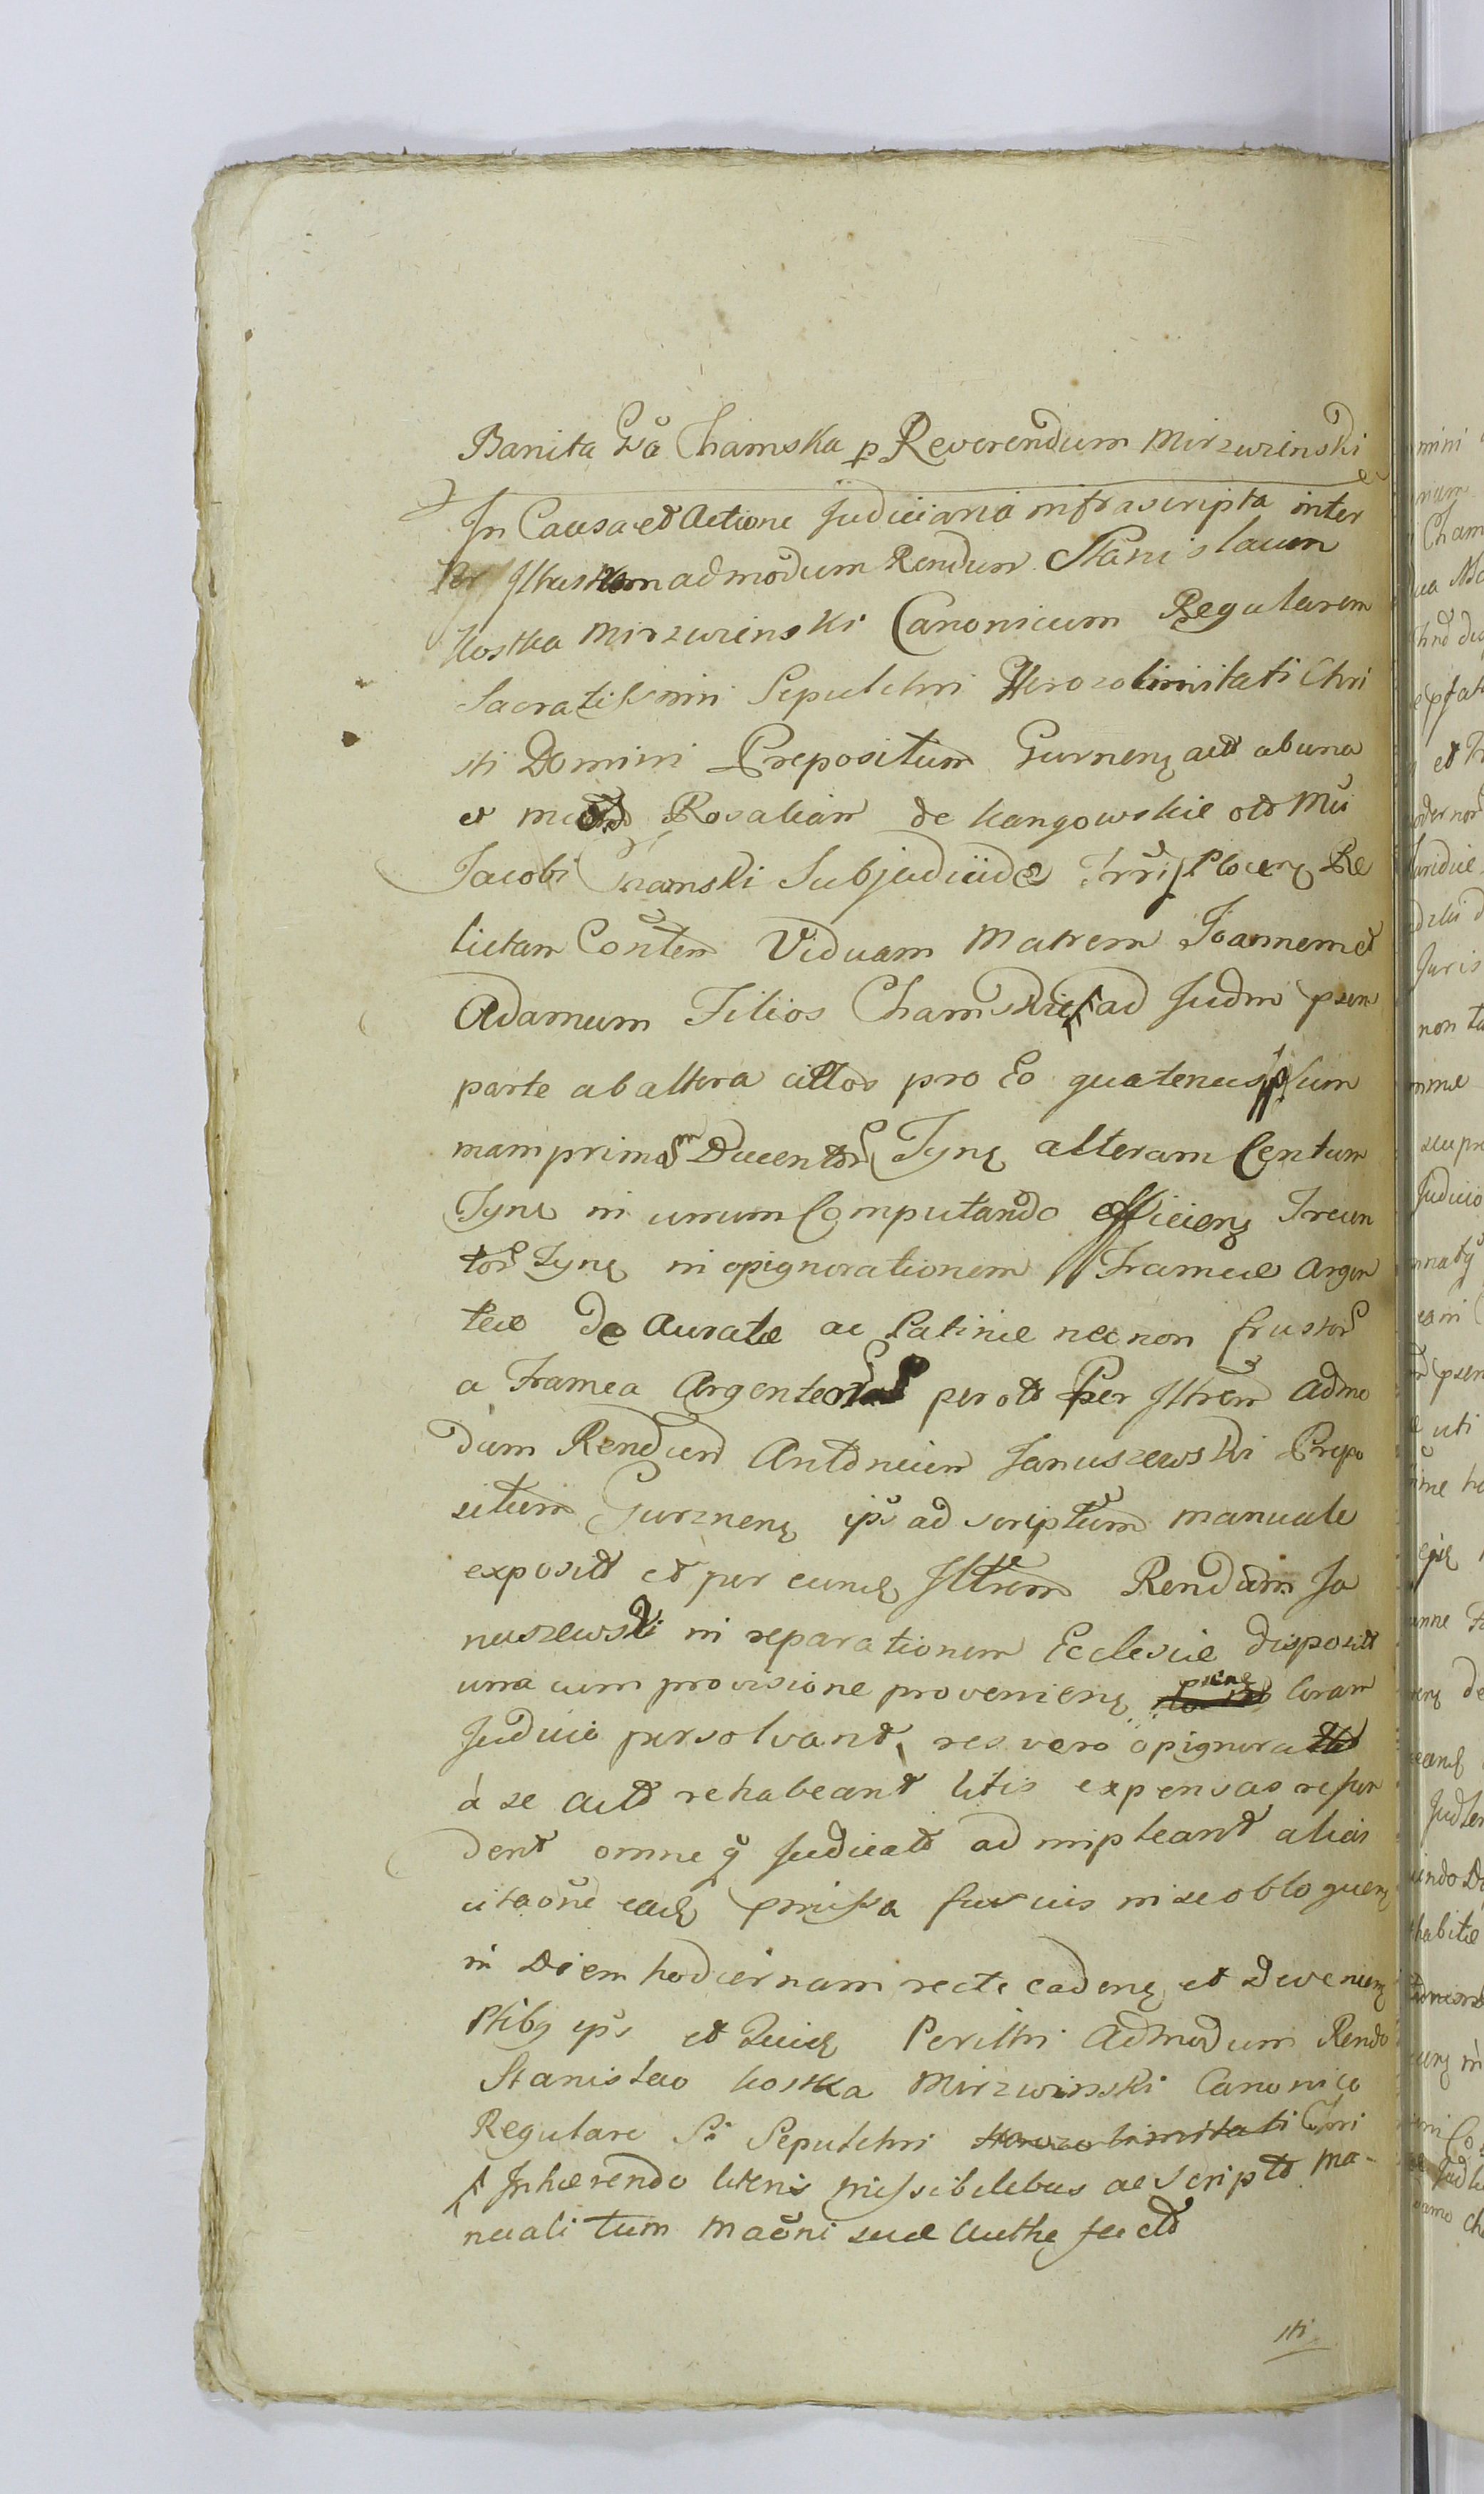 Banita Gsa Chamska p Reverendum Mirzwinski
In Causa et Actione Judiciaria infrascripta inter
Per Illustrem admodum Rendum Stanislaum
Kostka Mirzwinski Canonicum Regularem
Sacratissimi Sepulchri Hierozolimitati Chri
sti Domini Prepositum Gurnens act ab una
et Rosaliam de Kangowskie
Jacobi Chamski Subjudicide Plocens Re
lictam Viduam Matrem Joannem et
Adamum Filios Chamskie ad Judm psen
parte ab altera cittos pro Eo quatenus Sum
mam primam Ducentor Tynf alteram Centum
Tynf in unum Computando efficiens Trecen
tor Tynf in opignorationem Frameae Argen
teae De Auratae ac Patinae nec non frustor
a Framea Argenteor per Per Illrem admo
dum Rendum Antonium Januszewski Prepo
situm Gurznens ips ad scriptum manuale
exposit et per eund Illrem Rendum Ja
nuszewski in reparationem Ecclesiae disposit
una cum provisione proveniens psens Coram
Judicio persolvant, res vero opignorat
à se act rehabeant litis expensas refun
dent omne q Judicat adimpleant alias
citaone ead pmissa fusius in se obloquens
in Diem hodiernam recte cadens et Deveniens
Ptibq ips et Perillri Admodum Rendo
Stanislao Kostka Mirzwinski Canonico
Regulare S. Sepulchri Hierozolimitati Chri
Inhaerendo literis missibilibus ac Script Ma-
nuali tum maoni suae
sti